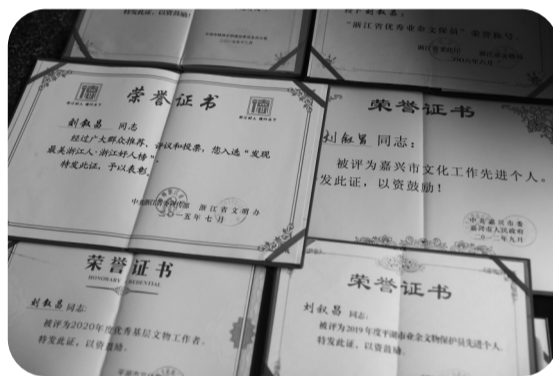 特发此证，以资鼓励！
授予刘叙昌：
“浙江省优秀业余文保员”荣誉称号。
荣誉证书
刘叙昌 同志
经过广大群众推荐、评议和投票，您入选“发现
最美浙江人·浙江好人榜”。
特发此证，予以表彰。
浙江省文明办
一五年七月
荣誉证书
刘叙昌 同志：
被评为嘉兴市文化工作先进个人。
发此证，以资鼓励！
中共嘉兴市委
嘉兴市人民政府
二〇一二年九月
荣誉证书
HONORARY CREDENTIAL
刘叙昌 同志：
被评为2020年度优秀基层文物工作者。
特发此证，以资鼓励。
荣誉证书
刘叙昌 同志：
被评为2019年度平湖市业余文物保护员先进个人。
特发此证，以资鼓励。